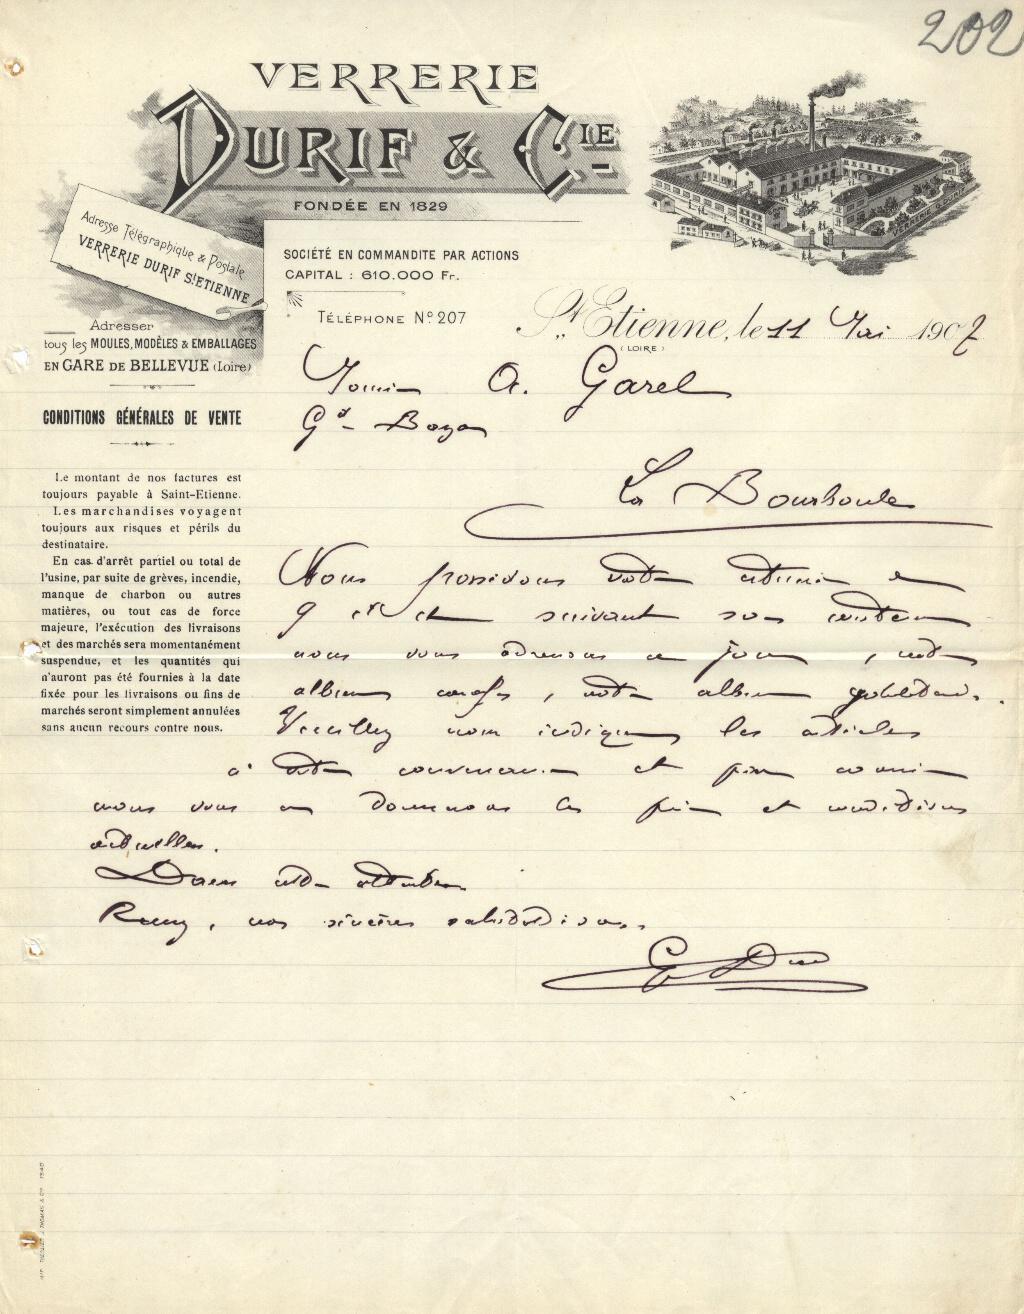 202
VERRERIE
DURIF & CIE
FONDÉE EN 1829
Adresse Télégraphique & Postale
VERRERIE DURIF ST ETIENNE
SOCIÉTÉ EN COMMANDITE PAR ACTIONS
CAPITAL : 610.000 Fr.
TÉLÉPHONE No 207
Adresser
tous les MOULES, MODÈLES & EMBALLAGES
EN GARE DE BELLEVUE (Loire)
St Etienne, le 11 Mai 1907
(LOIRE)
CONDITIONS GÉNÉRALES DE VENTE
Le montant de nos factures est
toujours payable à Saint-Etienne.
Les marchandises voyagent
toujours aux risques et périls du
destinataire.
En cas d'arrêt partiel ou total de
l'usine, par suite de grèves, incendie,
manque de charbon ou autres
matières, ou tout cas de force
majeure, l'exécution des livraisons
et des marchés sera momentanément
suspendue, et les quantités qui
n'auront pas été fournies à la date
fixée pour les livraisons ou fins de
marchés seront simplement annulées
sans aucun recours contre nous.
A. Garel
Gd
La Bourboule
Nous possédons votre
9 et suivant son
nous vous adressons ce jour, notre
album, notre album gobeleterie.
Veuillez nous indiquer les articles
à votre convenance et par courrier
nous vous en donnerons les prix et conditions
actuelles.
Dans cette attente
Recevez, nos sincères salutations.
IMP. THÉOLIER J. THOMAS & Cie